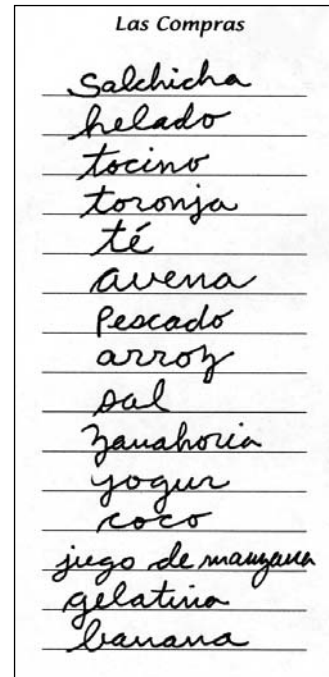 Las Compras
Salchicha
helado
tocino
toronja
té
avena
Pescado
arroz
sal
Zanahoria
yogur
coco
jugo de manzana
gelatina
banana